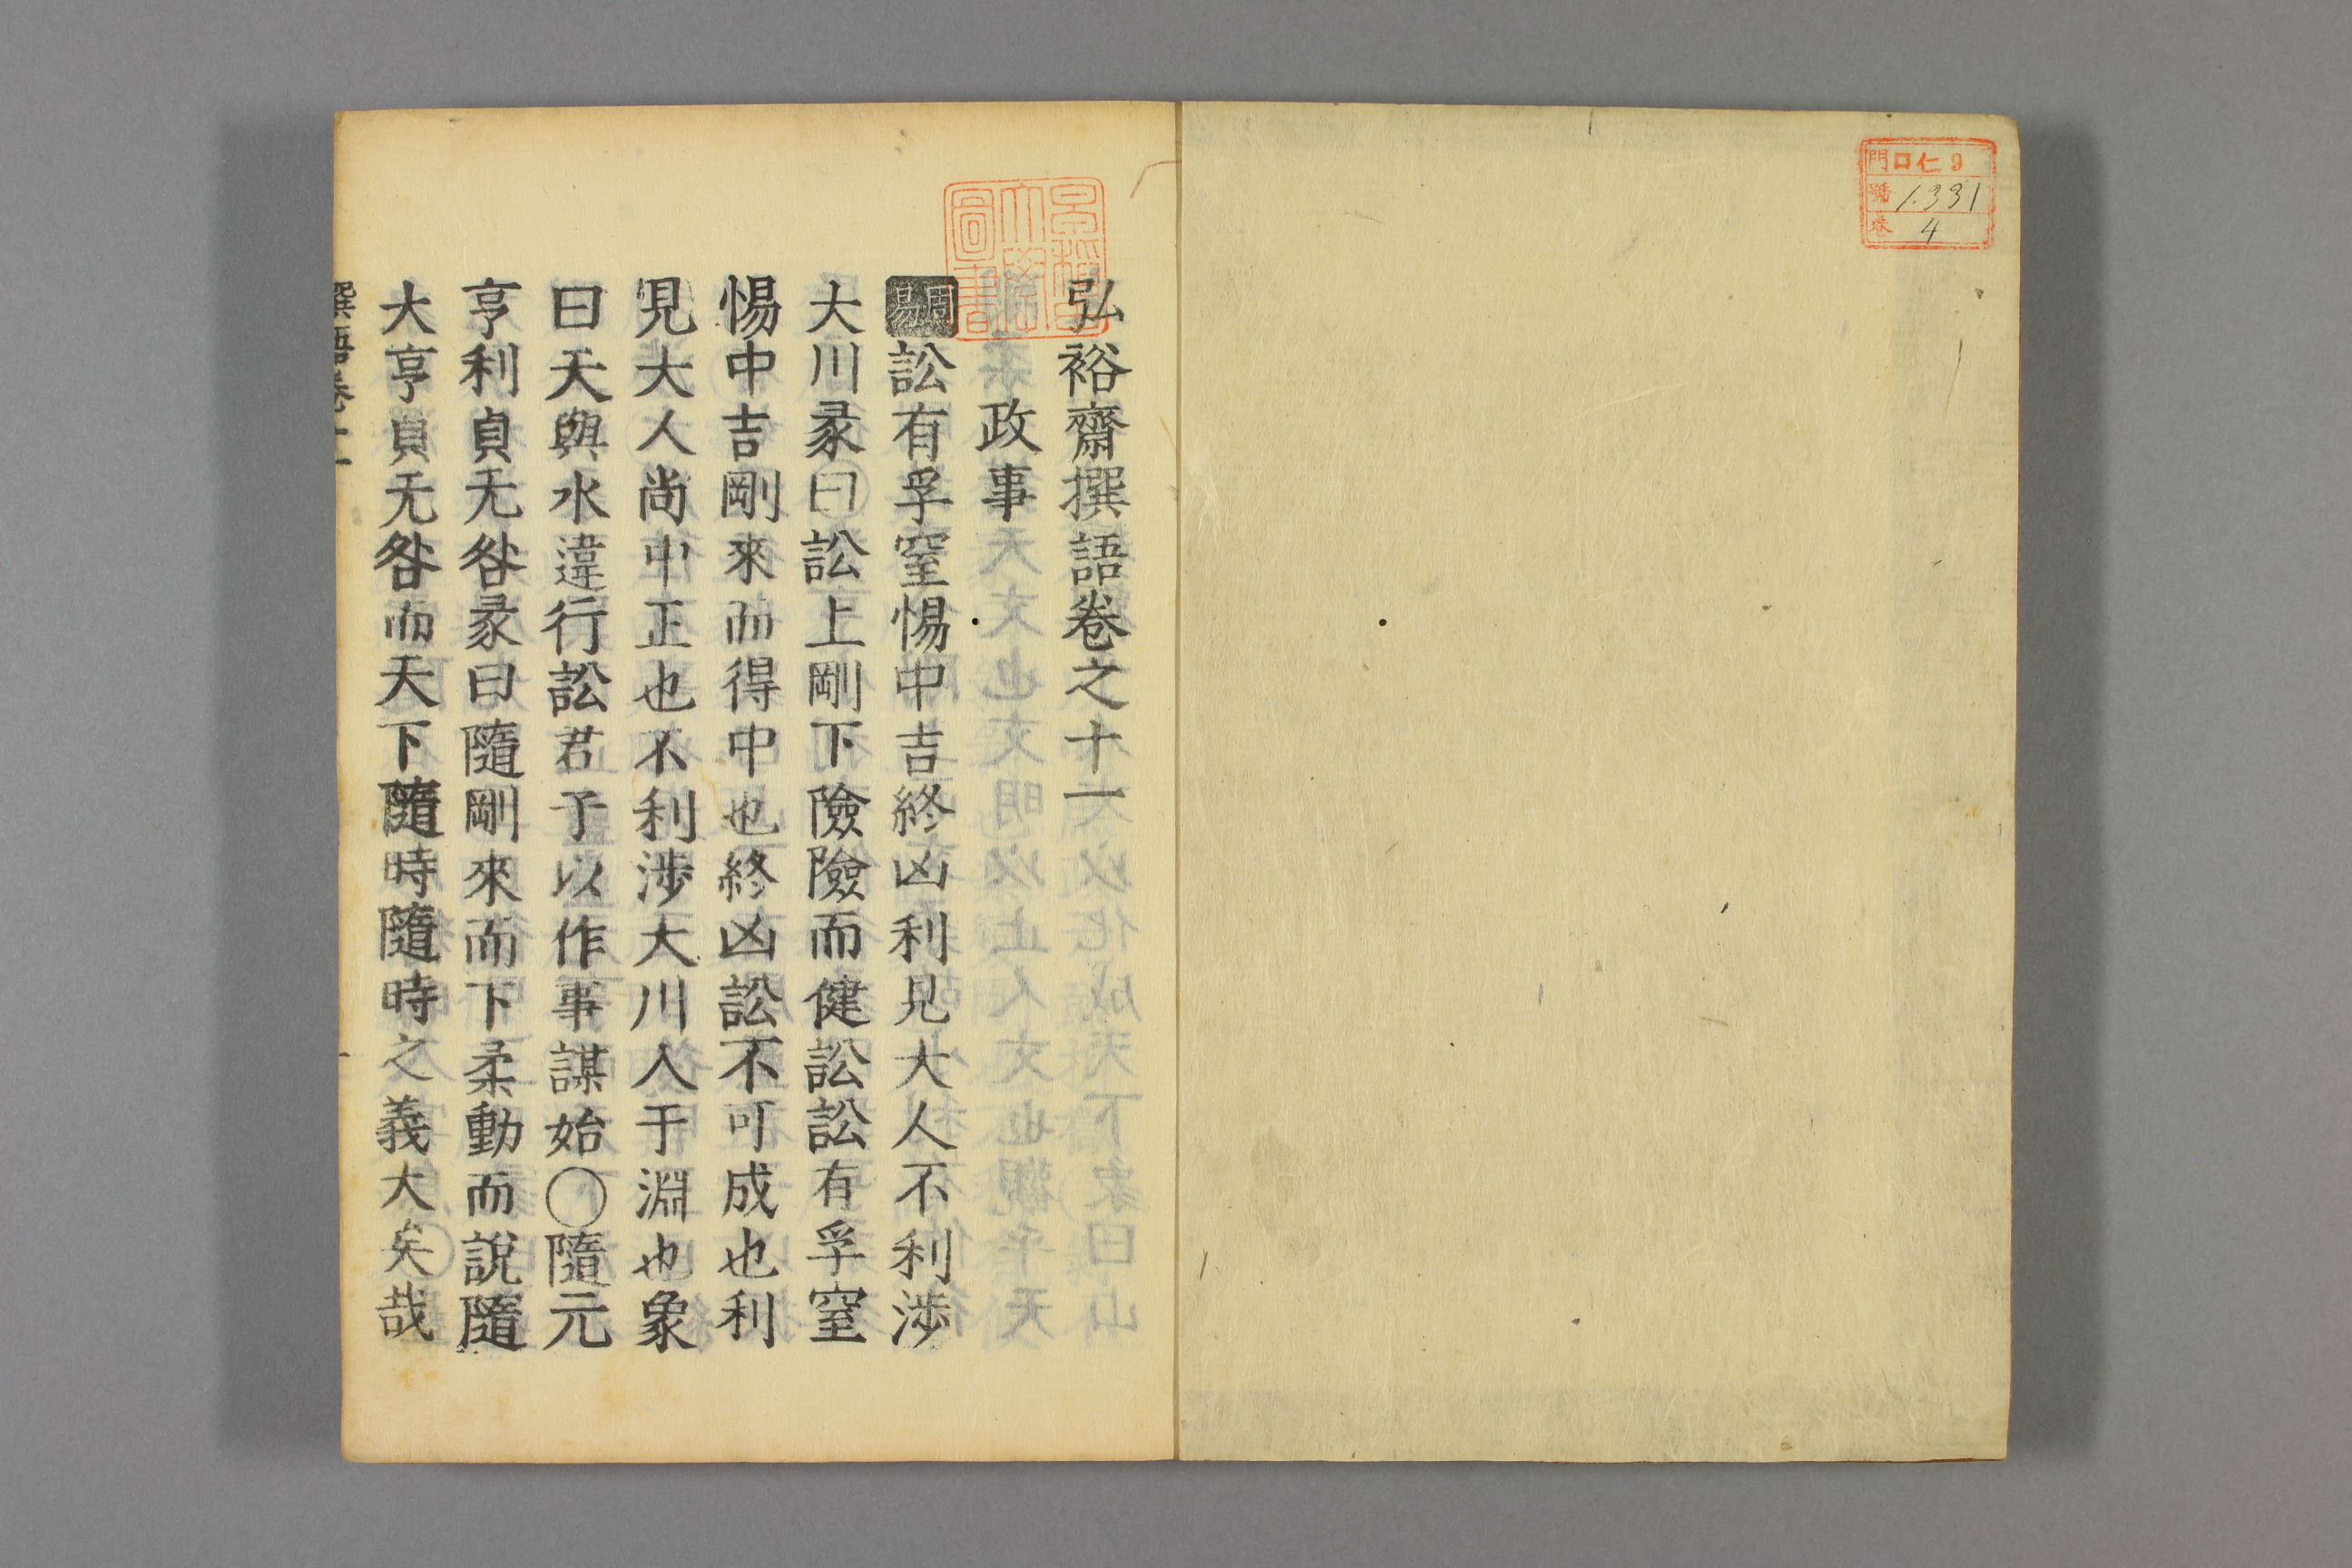 門 口仁9
號 1331
卷 4
早稻田大學圖書
弘裕齋撰語卷之十一
政事
周易 訟有孚窒惕中吉終凶利見大人不利涉
大川彖曰訟上剛下險險而健訟訟有孚窒
惕中吉剛來而得中也終凶訟不可成也利
見大人尚中正也不利涉大川入于淵也象
曰天與水違行訟君子以作事謀始○隨元
亨利貞无咎彖曰隨剛來而下柔動而說隨
大亨貞无咎而天下隨時隨時之義大矣哉
撰語卷十一
一